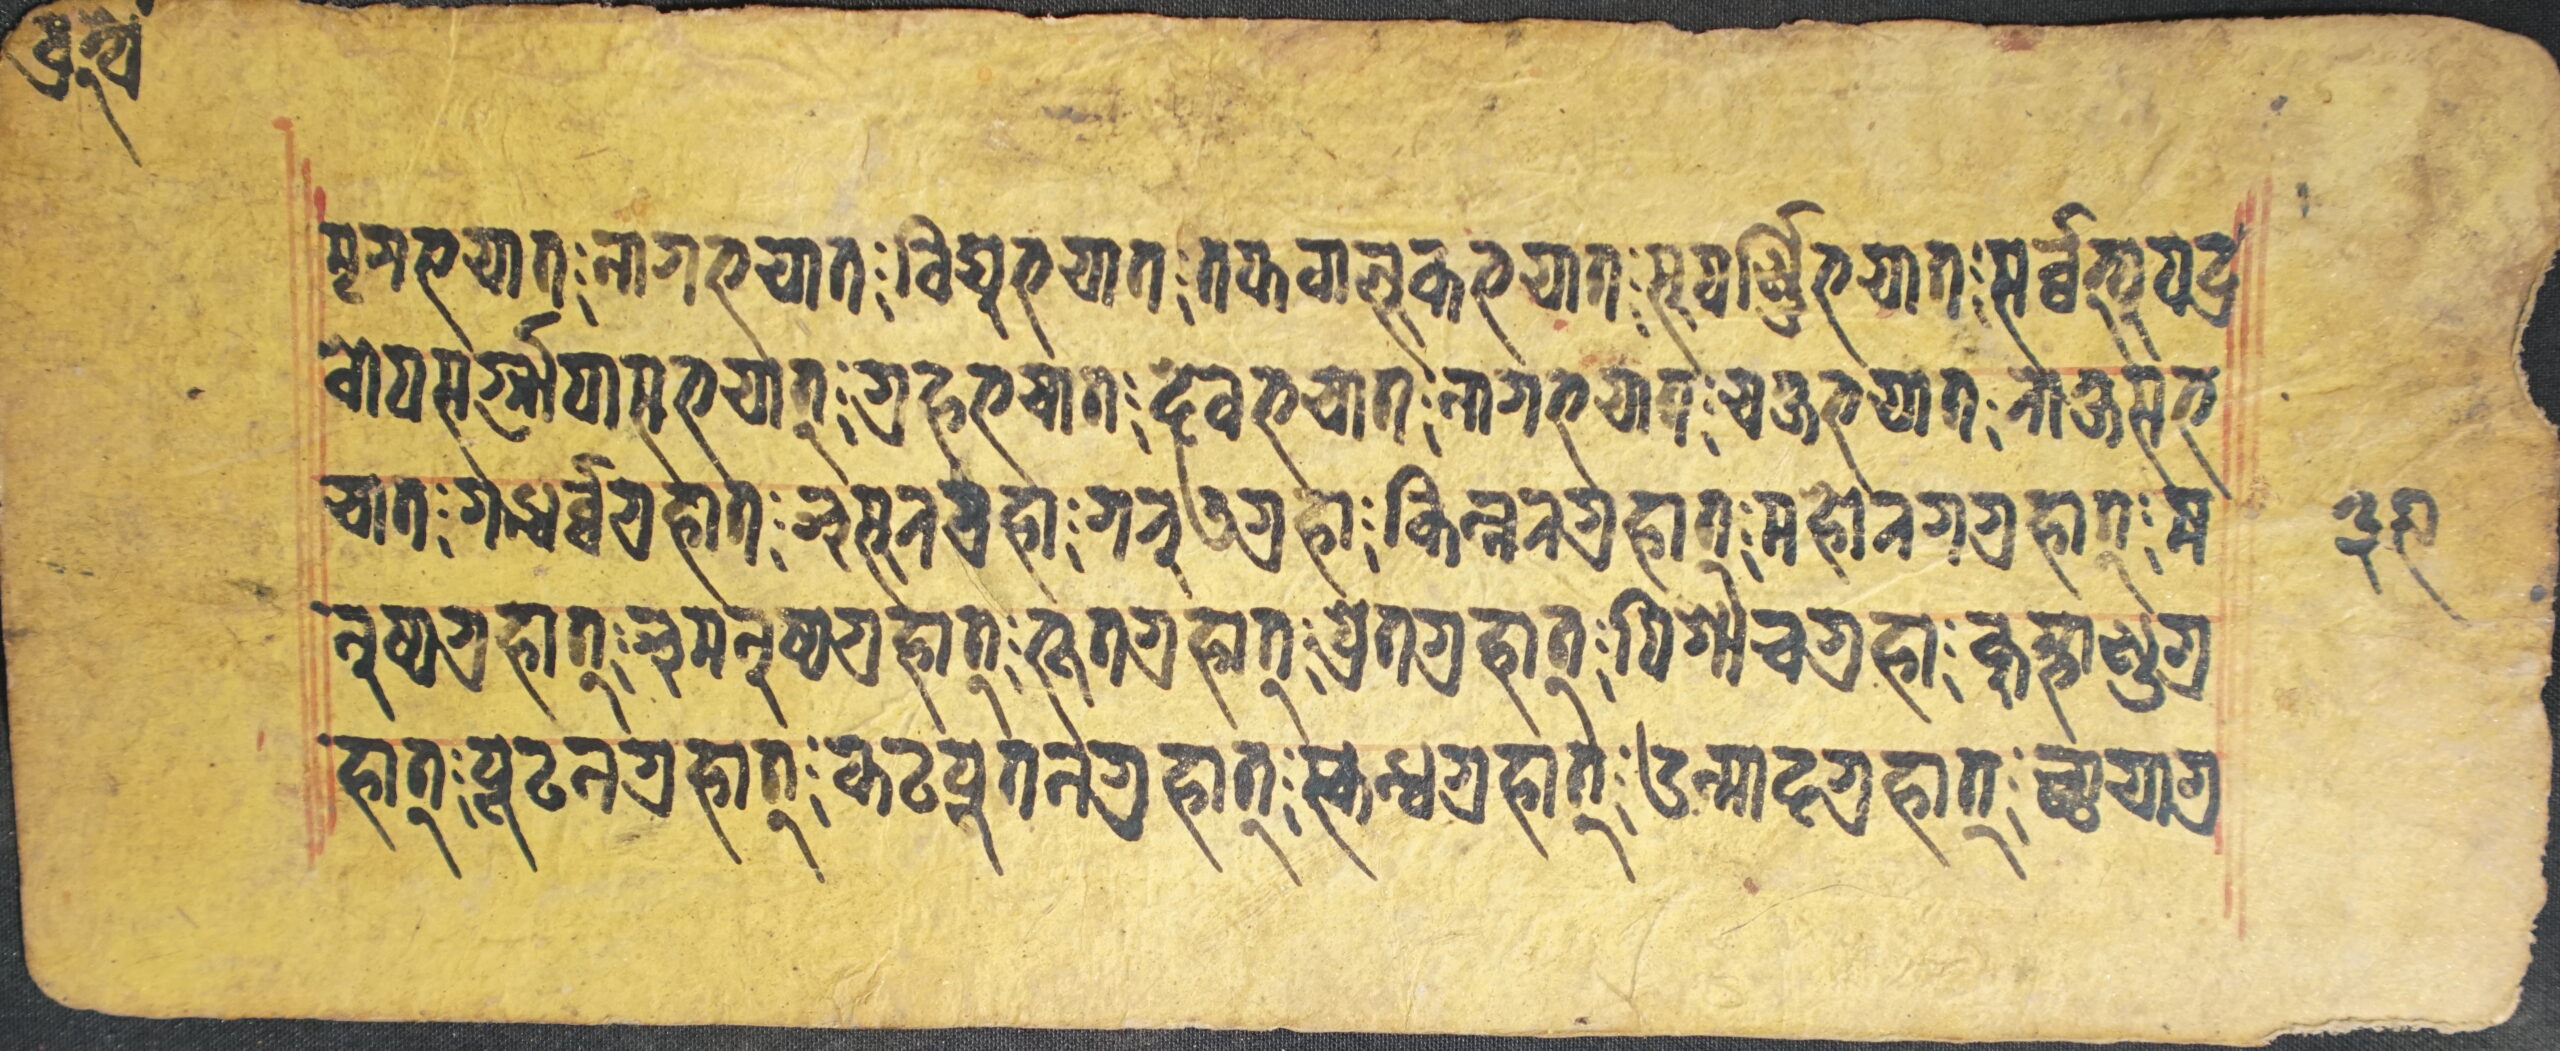 मृगभयात्ः नागभयात्ः विद्युभयात्ः तप्तवालुकभयात्ः सुपर्ण्णिभयात्ः सर्व्वमृत्युपद्र
वोपसर्ग्गोपायासभयात्ः ग्रहभयात्ः देवभयात्ः नागभयात्ः यक्षभयात्ः राक्षसभ
यात्ः गन्धर्व्वग्रहात्ः असुरग्रहाः गरुडग्रहाः किन्नरग्रहात्ः महोरगग्रहात्ः म
नुष्यग्रहात्ः अमनुष्यग्रहात्ः भूतग्रहात्ः प्रेतग्रहात्ः पिशाचग्रहाः कुम्भाण्डग्र
हात्ः पूटनग्रहात्ः कटपूतनग्रहात्ः स्कन्धग्रहात्ः उन्मादग्रहात्ः छायाग्र